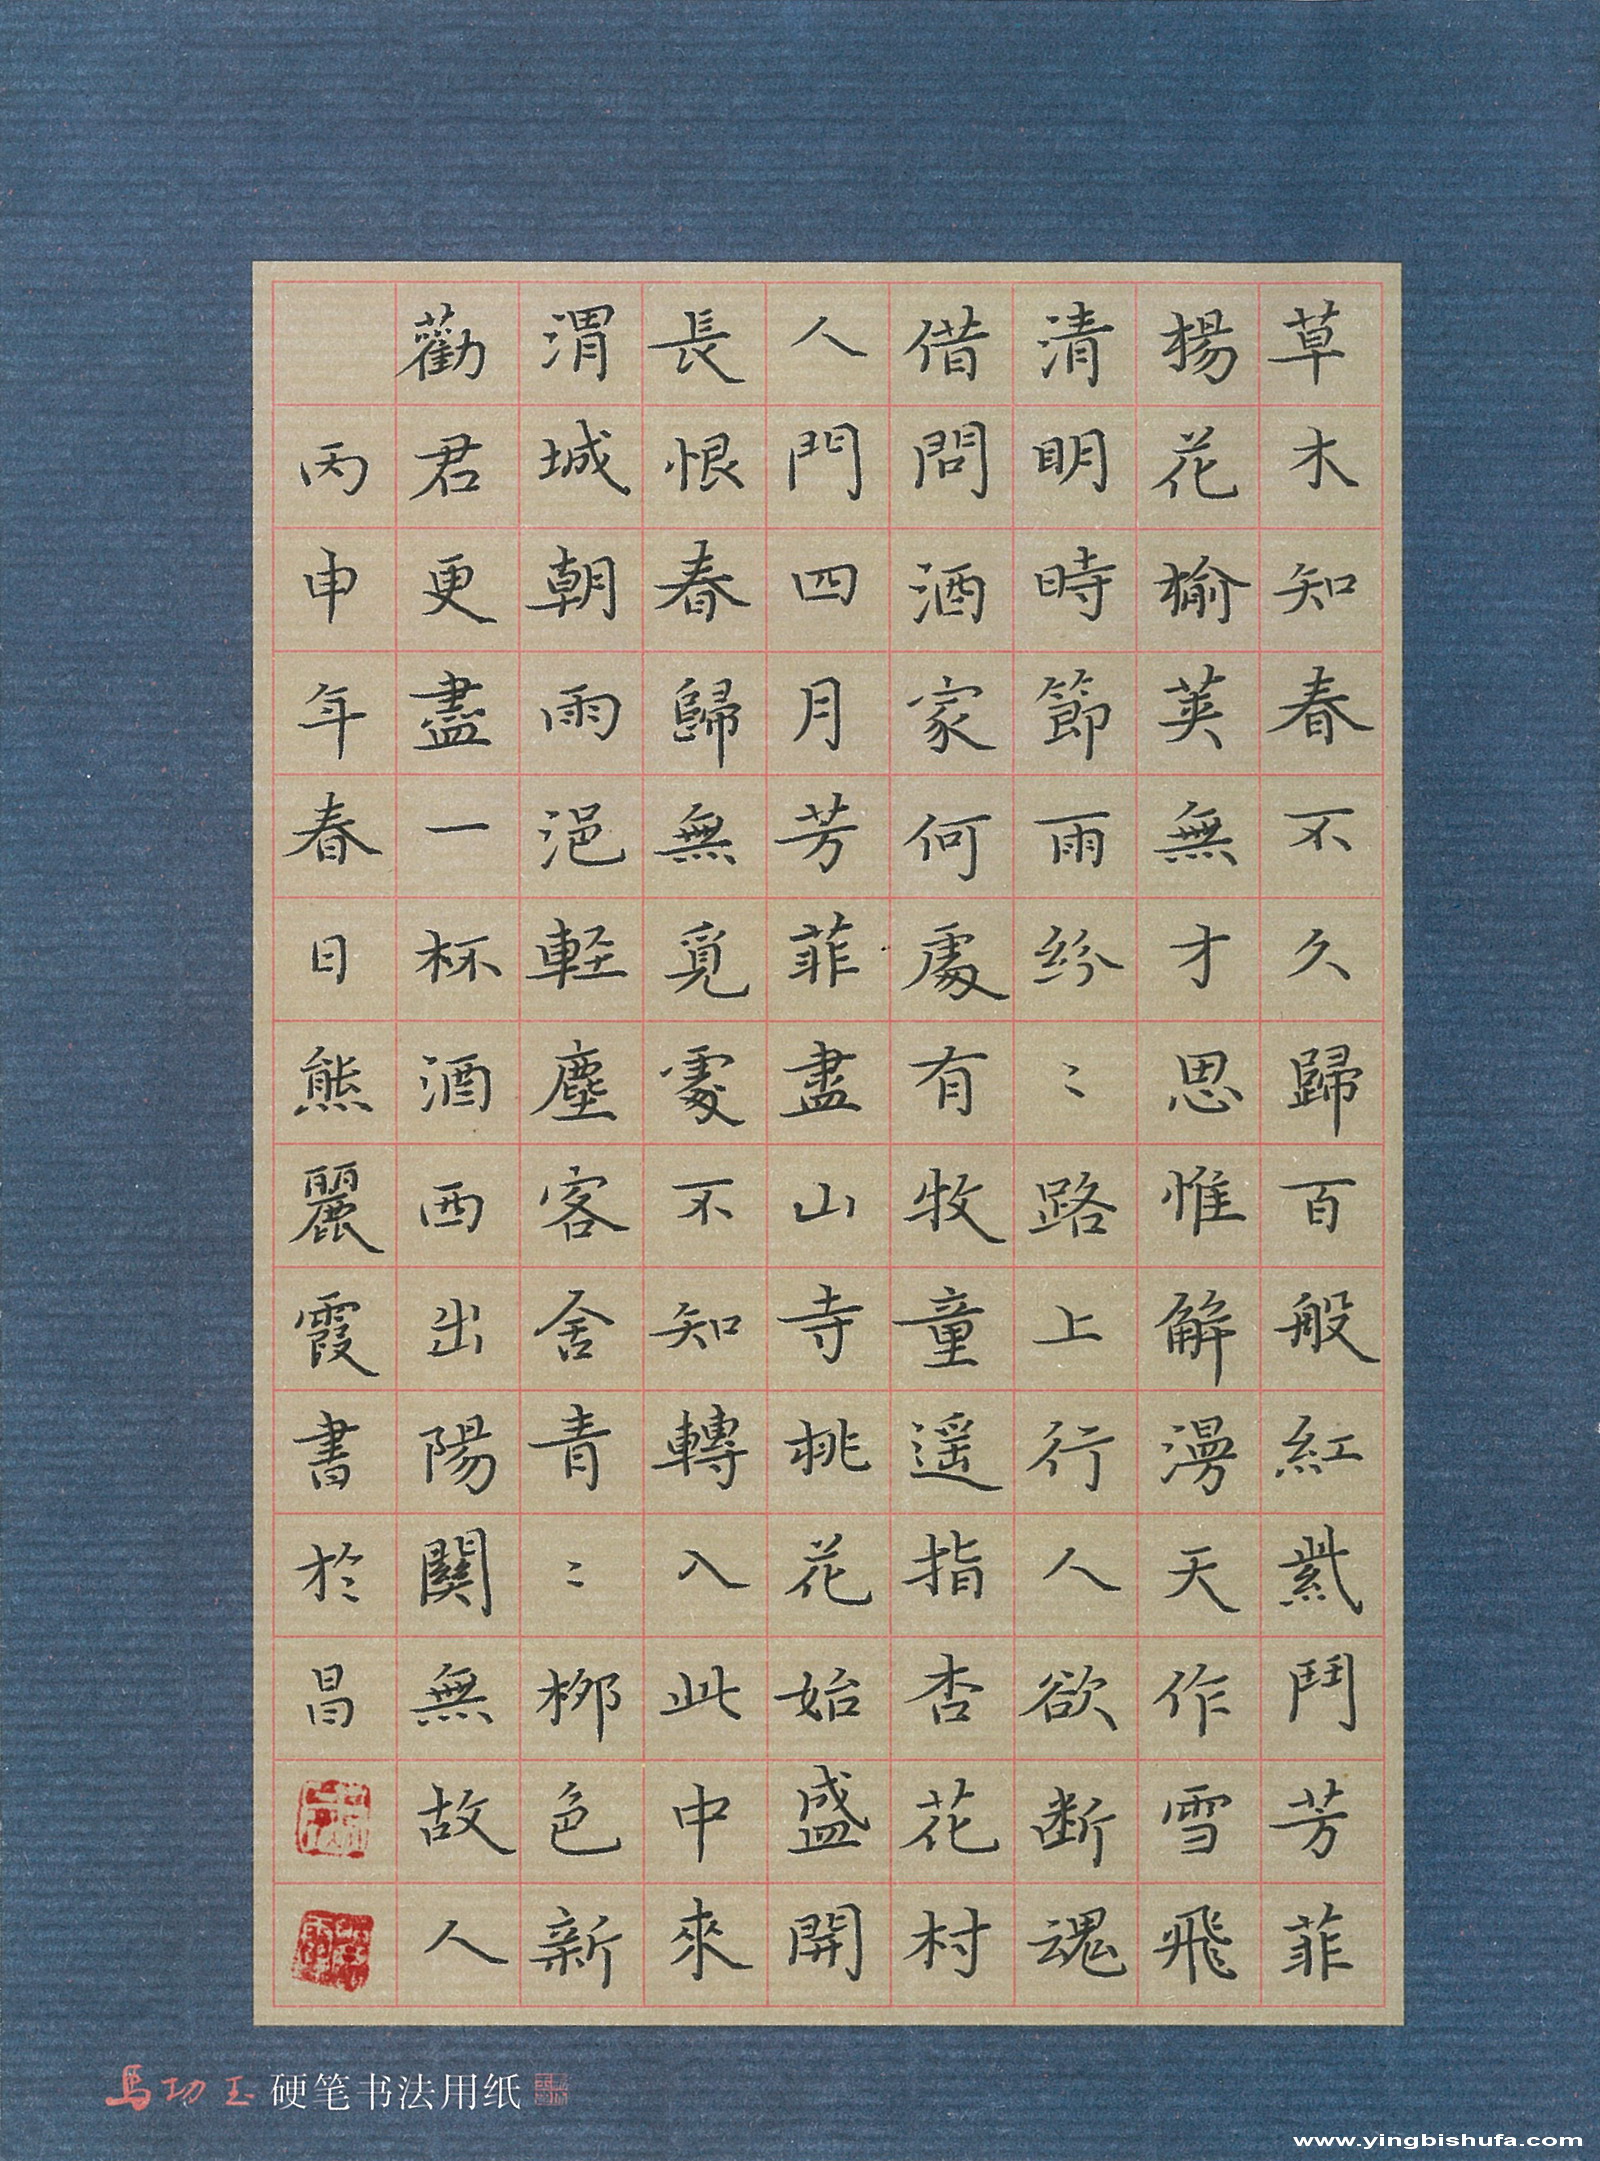 草木知春不久歸百般紅紫鬥芳菲
楊花榆莢無才思惟解漫天作雪飛
清明時節雨紛〻路上行人欲断魂
借問酒家何處有牧童遥指杏花村
人門四月芳菲盡山寺桃花始盛開
長恨春歸無覓處不知轉入此中來
渭城朝雨浥輕塵客舍青〻柳色新
勸君更盡一杯酒西出陽關無故人
丙申年春日熊麗霞書於昌
馬功玉硬笔书法用纸
www.yingbishufa.com